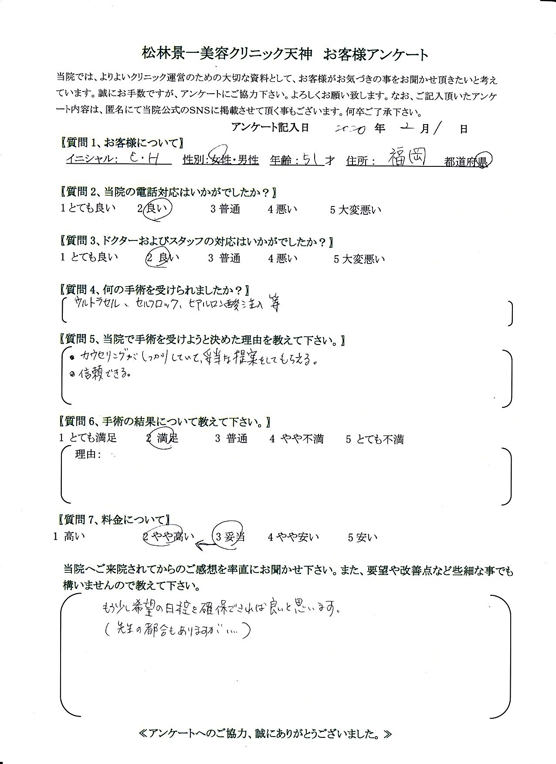 松林景一美容クリニック天神 お客様アンケート
当院では、よりよいクリニック運営のための大切な資料として、お客様がお気づきの事をお聞かせ頂きたいと考え
ています。誠にお手数ですが、アンケートにご協力下さい。よろしくお願い致します。なお、ご記入頂いたアンケ
ート内容は、匿名にて当院公式のSNSに掲載させて頂く事もございます。何卒ご了承下さい。
アンケート記入日 2020 年 2 月 1 日
【質問 1、お客様について】
イニシャル: E・H 性別:女性・男性 年齢:51才 住所: 福岡 都道府県
【質問 2、当院の電話対応はいかがでしたか?】
1とても良い 2良い 3普通 4悪い 5大変悪い
【質問 3、ドクターおよびスタッフの対応はいかがでしたか?】
1とても良い 2良い 3普通 4悪い 5大変悪い
【質問 4、何の手術を受けられましたか?】
ウルトラセル、セルフロック、ヒアルロン酸注入 等
【質問 5、当院で手術を受けようと決めた理由を教えて下さい。】
● カウセリングがしっかりしていて、妥当な提案をしてもらえる。
● 信頼できる。
【質問 6、手術の結果について教えて下さい。】
1とても満足 2満足 3普通 4やや不満 5とても不満
理由:
【質問 7、料金について】
1高い 2やや高い 3妥当 4やや安い 5安い
当院へご来院されてからのご感想を率直にお聞かせ下さい。また、要望や改善点など些細な事でも
構いませんので教えて下さい。
もう少し希望の日程を確保できれば良いと思います。
(先生の都合もありますが…)
≪アンケートへのご協力、誠にありがとうございました。≫